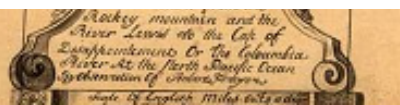 Rockey mountain and the
River Lewis to the Cap of
Disappointement Or the Coloumbia
River At the North Pacific Ocean
By observation Of
Scale Of English Miles